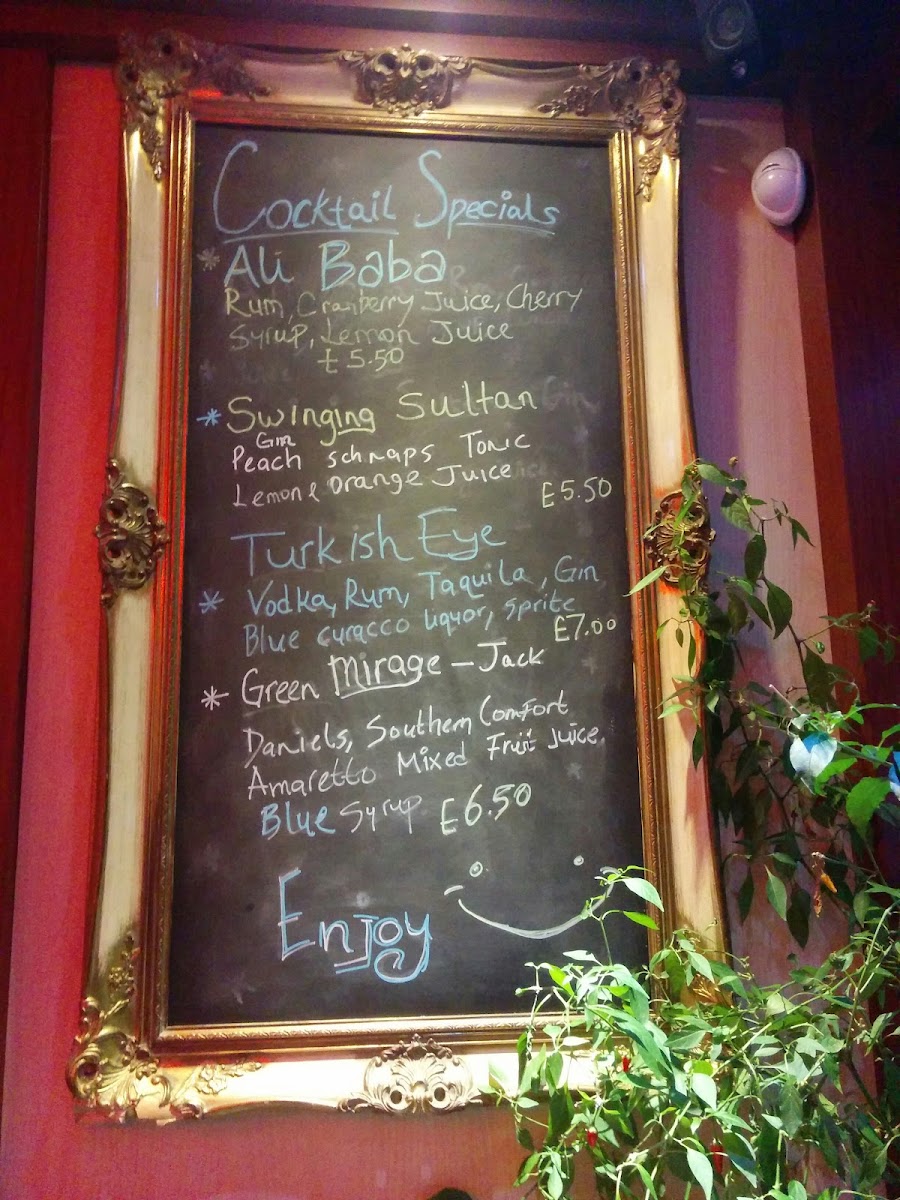 Cocktail Specials
* Ali Baba
Rum, Cranberry Juice, Cherry
Syrup, Lemon Juice
£5.50
* Swinging Sultan
Gin
Peach schnaps Tonic
Lemon & Orange Juice
£5.50
Turkish Eye
* Vodka, Rum, Taquila, Gin
Blue curacco liquor, sprite
£7.00
* Green Mirage - Jack
Daniels, Southern Comfort
Amaretto Mixed Fruit Juice.
Blue Syrup £6.50
Enjoy